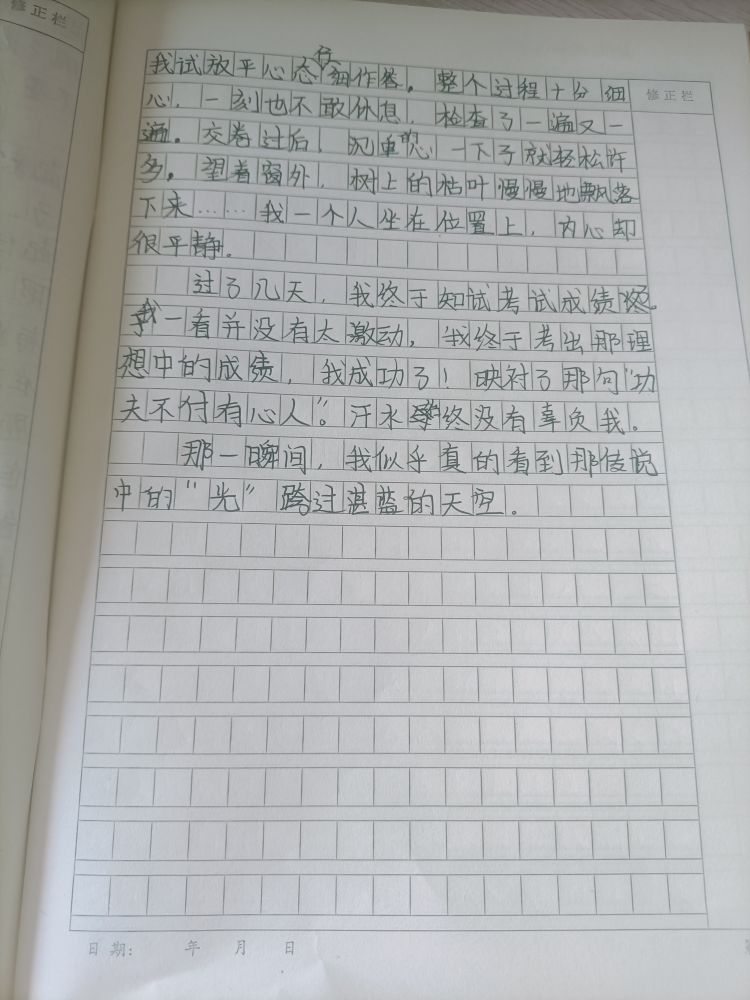 修正栏
修正栏
我试放平心态仔细作答。整个过程十分细
心，一刻也不敢休息，检查了一遍又一
遍。交卷过后，沉重的心一下子就轻松许
多。望着窗外，树上的枯叶慢慢地飘落
下来……我一个人坐在位置上，内心却
很平静。
过了几天，我终于知试考试成绩
我一看并没有太激动，我终于考出那理
想中的成绩，我成功了！映衬了那句“功
夫不付有心人”。汗水终没有辜负我。
那一瞬间，我似乎真的看到那传说
中的“光”跨过湛蓝的天空。
日期： 年 月 日